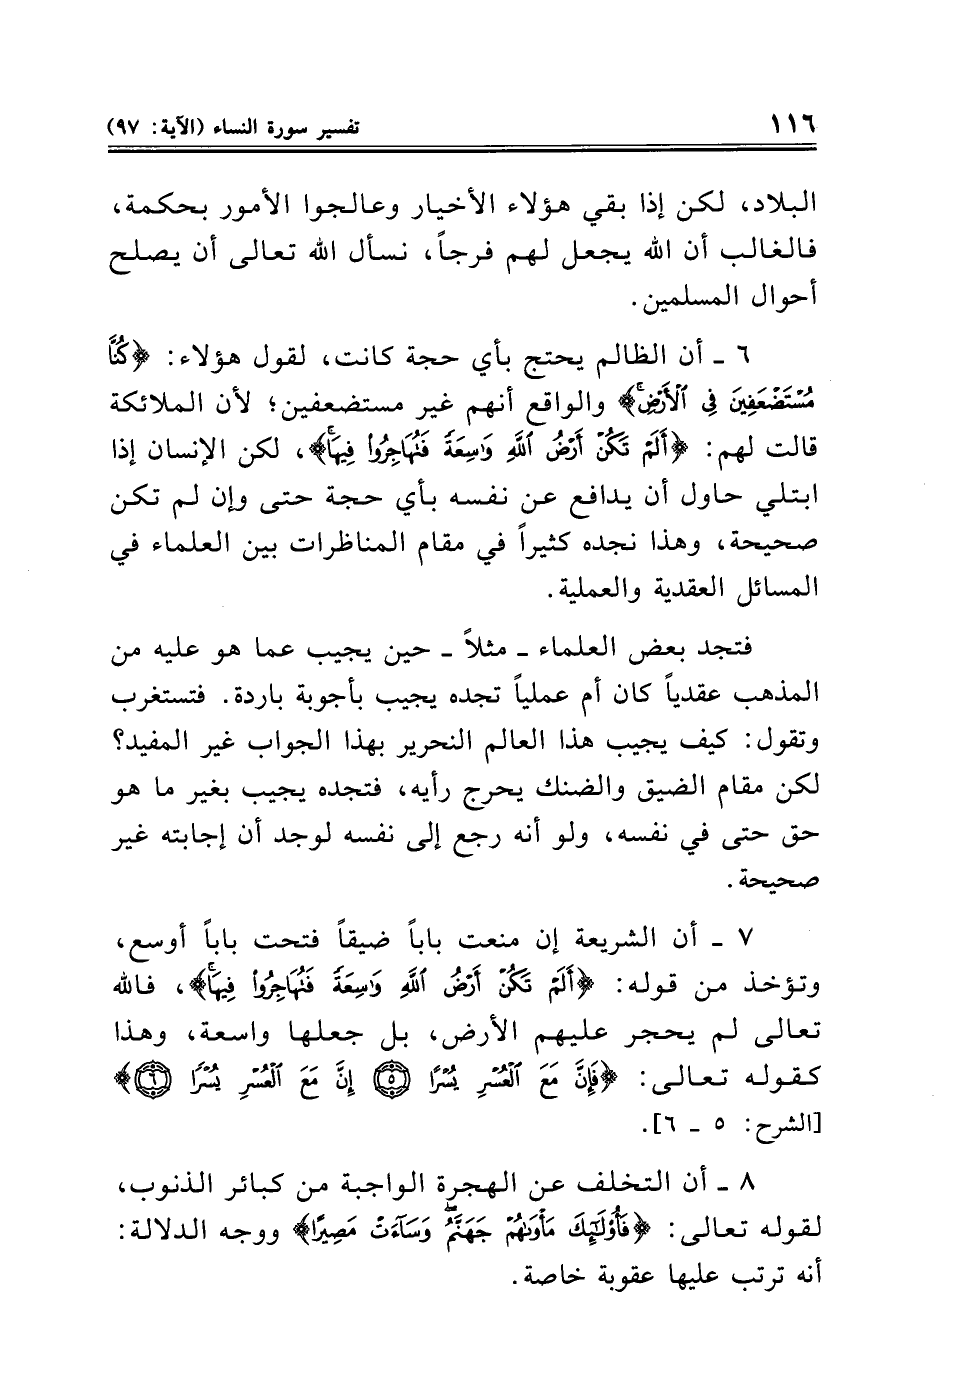 ١١٦ تفسير سورة النساء (الآية: ٩٧)
البلاد، لكن إذا بقي هؤلاء الأخيار وعالجوا الأمور بحكمة،
فالغالب أن الله يجعل لهم فرجاً، نسأل الله تعالى أن يصلح
أحوال المسلمين.
٦ ـ أن الظالم يحتج بأي حجة كانت، لقول هؤلاء: ﴿كُنَّا
مُسْتَضْعَفِينَ فِي ٱلْأَرْضِۚ﴾ والواقع أنهم غير مستضعفين؛ لأن الملائكة
قالت لهم: ﴿أَلَمْ تَكُنْ أَرْضُ ٱللَّهِ وَٰسِعَةً فَتُهَاجِرُوا۟ فِيهَاۚ﴾، لكن الإنسان إذا
ابتلي حاول أن يدافع عن نفسه بأي حجة حتى وإن لم تكن
صحيحة، وهذا نجده كثيراً في مقام المناظرات بين العلماء في
المسائل العقدية والعملية.
فتجد بعض العلماء ـ مثلاً ـ حين يجيب عما هو عليه من
المذهب عقدياً كان أم عملياً تجده يجيب بأجوبة باردة. فتستغرب
وتقول: كيف يجيب هذا العالم النحرير بهذا الجواب غير المفيد؟
لكن مقام الضيق والضنك يحرج رأيه، فتجده يجيب بغير ما هو
حق حتى في نفسه، ولو أنه رجع إلى نفسه لوجد أن إجابته غير
صحيحة.
٧ ـ أن الشريعة إن منعت باباً ضيقاً فتحت باباً أوسع،
وتؤخذ من قوله: ﴿أَلَمْ تَكُنْ أَرْضُ ٱللَّهِ وَٰسِعَةً فَتُهَاجِرُوا۟ فِيهَاۚ﴾، فالله
تعالى لم يحجر عليهم الأرض، بل جعلها واسعة، وهذا
كقوله تعالى: ﴿فَإِنَّ مَعَ ٱلْعُسْرِ يُسْرًا ۝٥ إِنَّ مَعَ ٱلْعُسْرِ يُسْرًا ۝٦﴾
[الشرح: ٥ ـ ٦].
٨ ـ أن التخلف عن الهجرة الواجبة من كبائر الذنوب،
لقوله تعالى: ﴿فَأُو۟لَٰٓئِكَ مَأْوَىٰهُمْ جَهَنَّمُۖ وَسَآءَتْ مَصِيرًا﴾ ووجه الدلالة:
أنه ترتب عليها عقوبة خاصة.